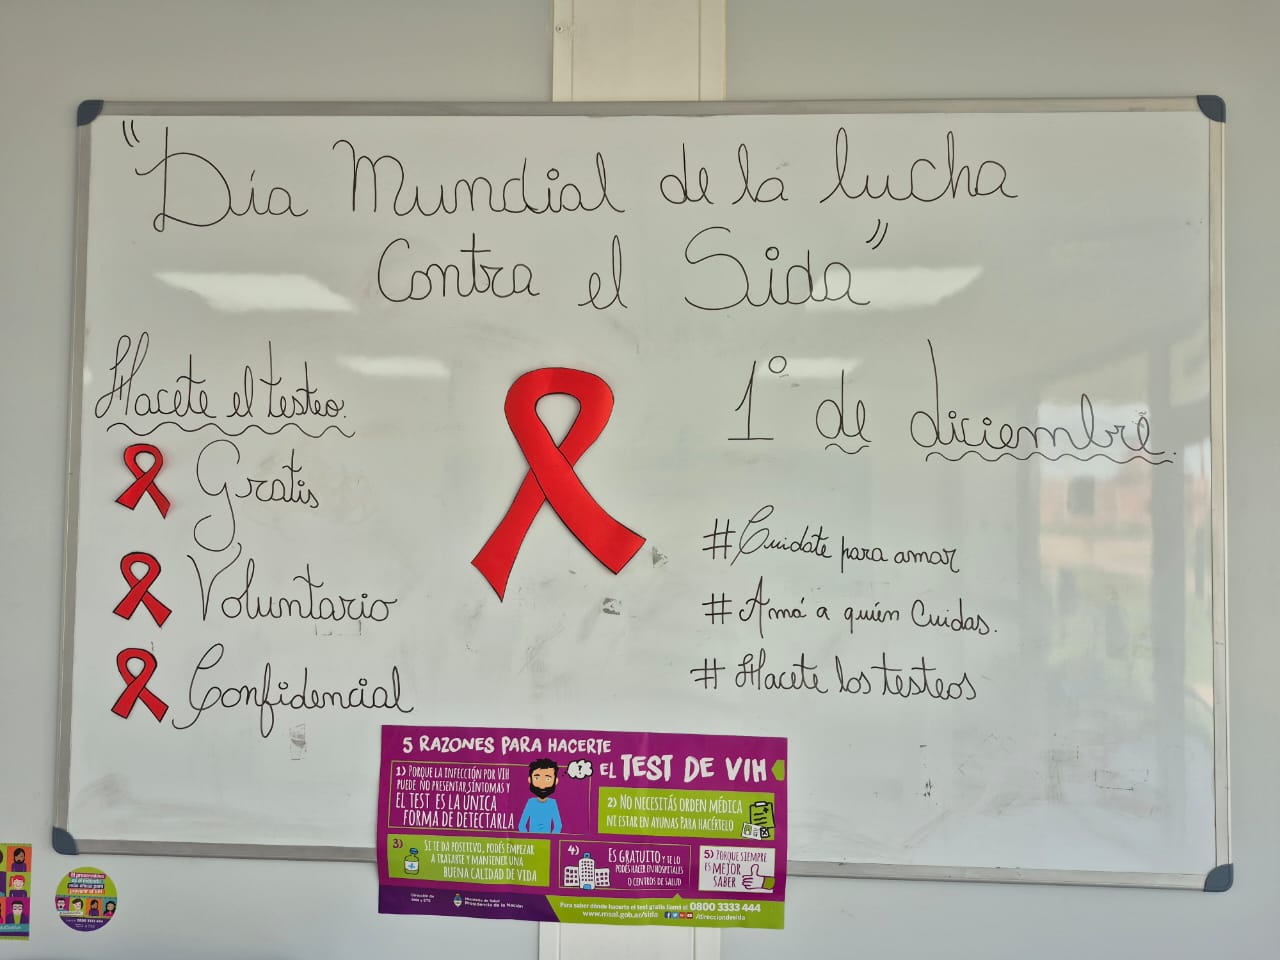 "Día Mundial de la lucha
Contra el Sida"
Hacete el testeo.
Gratis
Voluntario
Confidencial
1° de diciembre.
#Cuidate para amar
#Amá a quién Cuidas.
#Hacete los testeos
5 RAZONES PARA HACERTE
EL TEST DE VIH
1) PORQUE LA INFECCIÓN POR VIH
PUEDE NO PRESENTAR SÍNTOMAS Y
EL TEST ES LA UNICA
FORMA DE DETECTARLA
?
2) NO NECESITÁS ORDEN MÉDICA
NI ESTAR EN AYUNAS PARA HACÉRTELO
3) SI TE DA POSITIVO, PODÉS EMPEZAR
A TRATARTE Y MANTENER UNA
BUENA CALIDAD DE VIDA
4) ES GRATUITO Y TE LO
PODÉS HACER EN HOSPITALES
O CENTROS DE SALUD
5) PORQUE SIEMPRE
ES MEJOR
SABER
Dirección de
Sida y ETS
Ministerio de Salud
Presidencia de la Nación
Para saber dónde hacerte el test gratis llamá al 0800 3333 444
www.msal.gob.ar/sida /direcciondesida
El preservativo
es el método
más eficaz para
prevenir el VIH
0800 3333 444